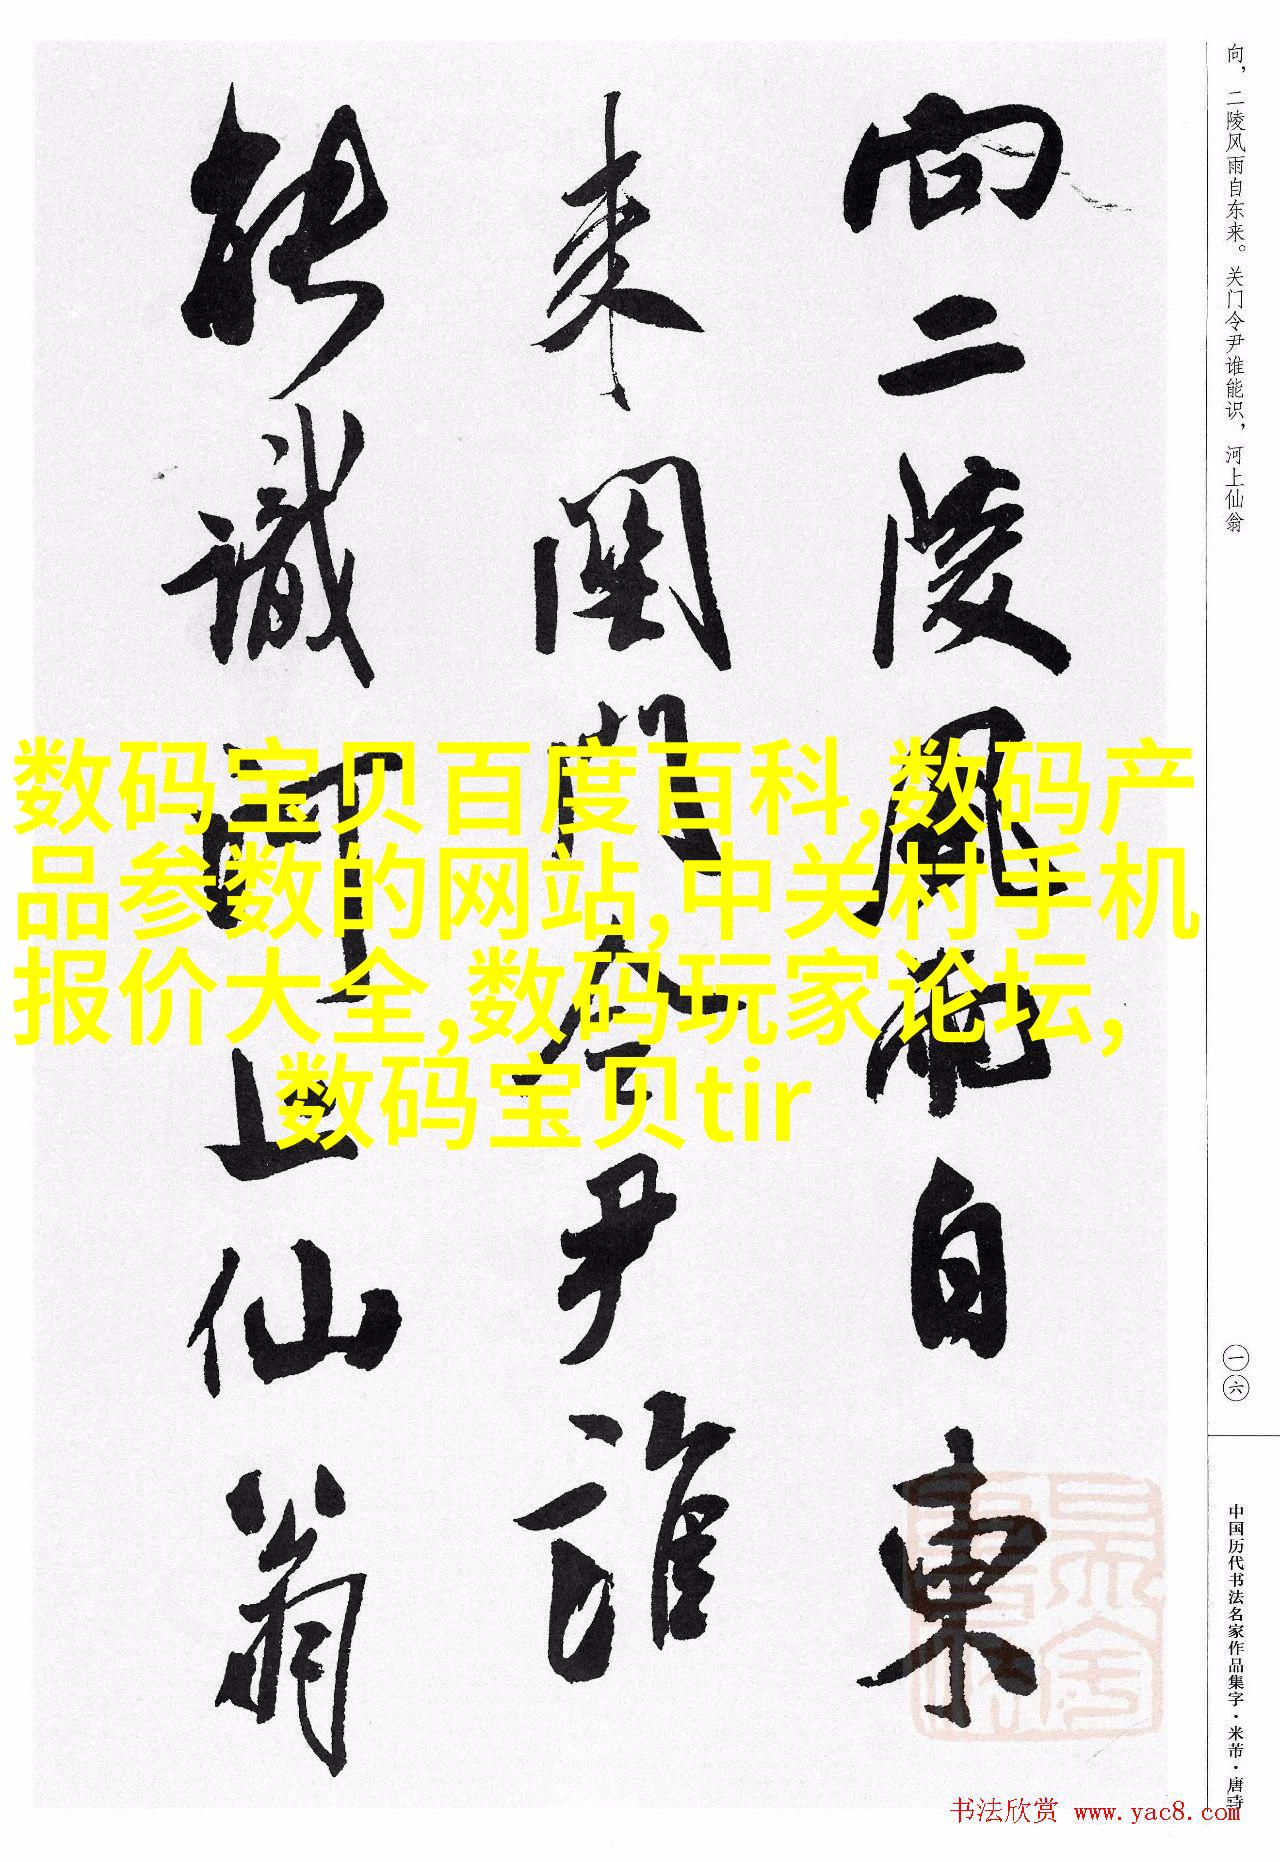 向二陵风雨自東
来関門令尹誰
能識河上仙翁
向，二陵风雨自东来。关门令尹谁能识，河上仙翁
一六
中国历代书法名家作品集字·米芾·唐诗
数码宝贝百度百科,数码产
品参数的网站,中关村手机
报价大全,数码玩家论坛,
数码宝贝tir
书法欣赏 www.yac8.com